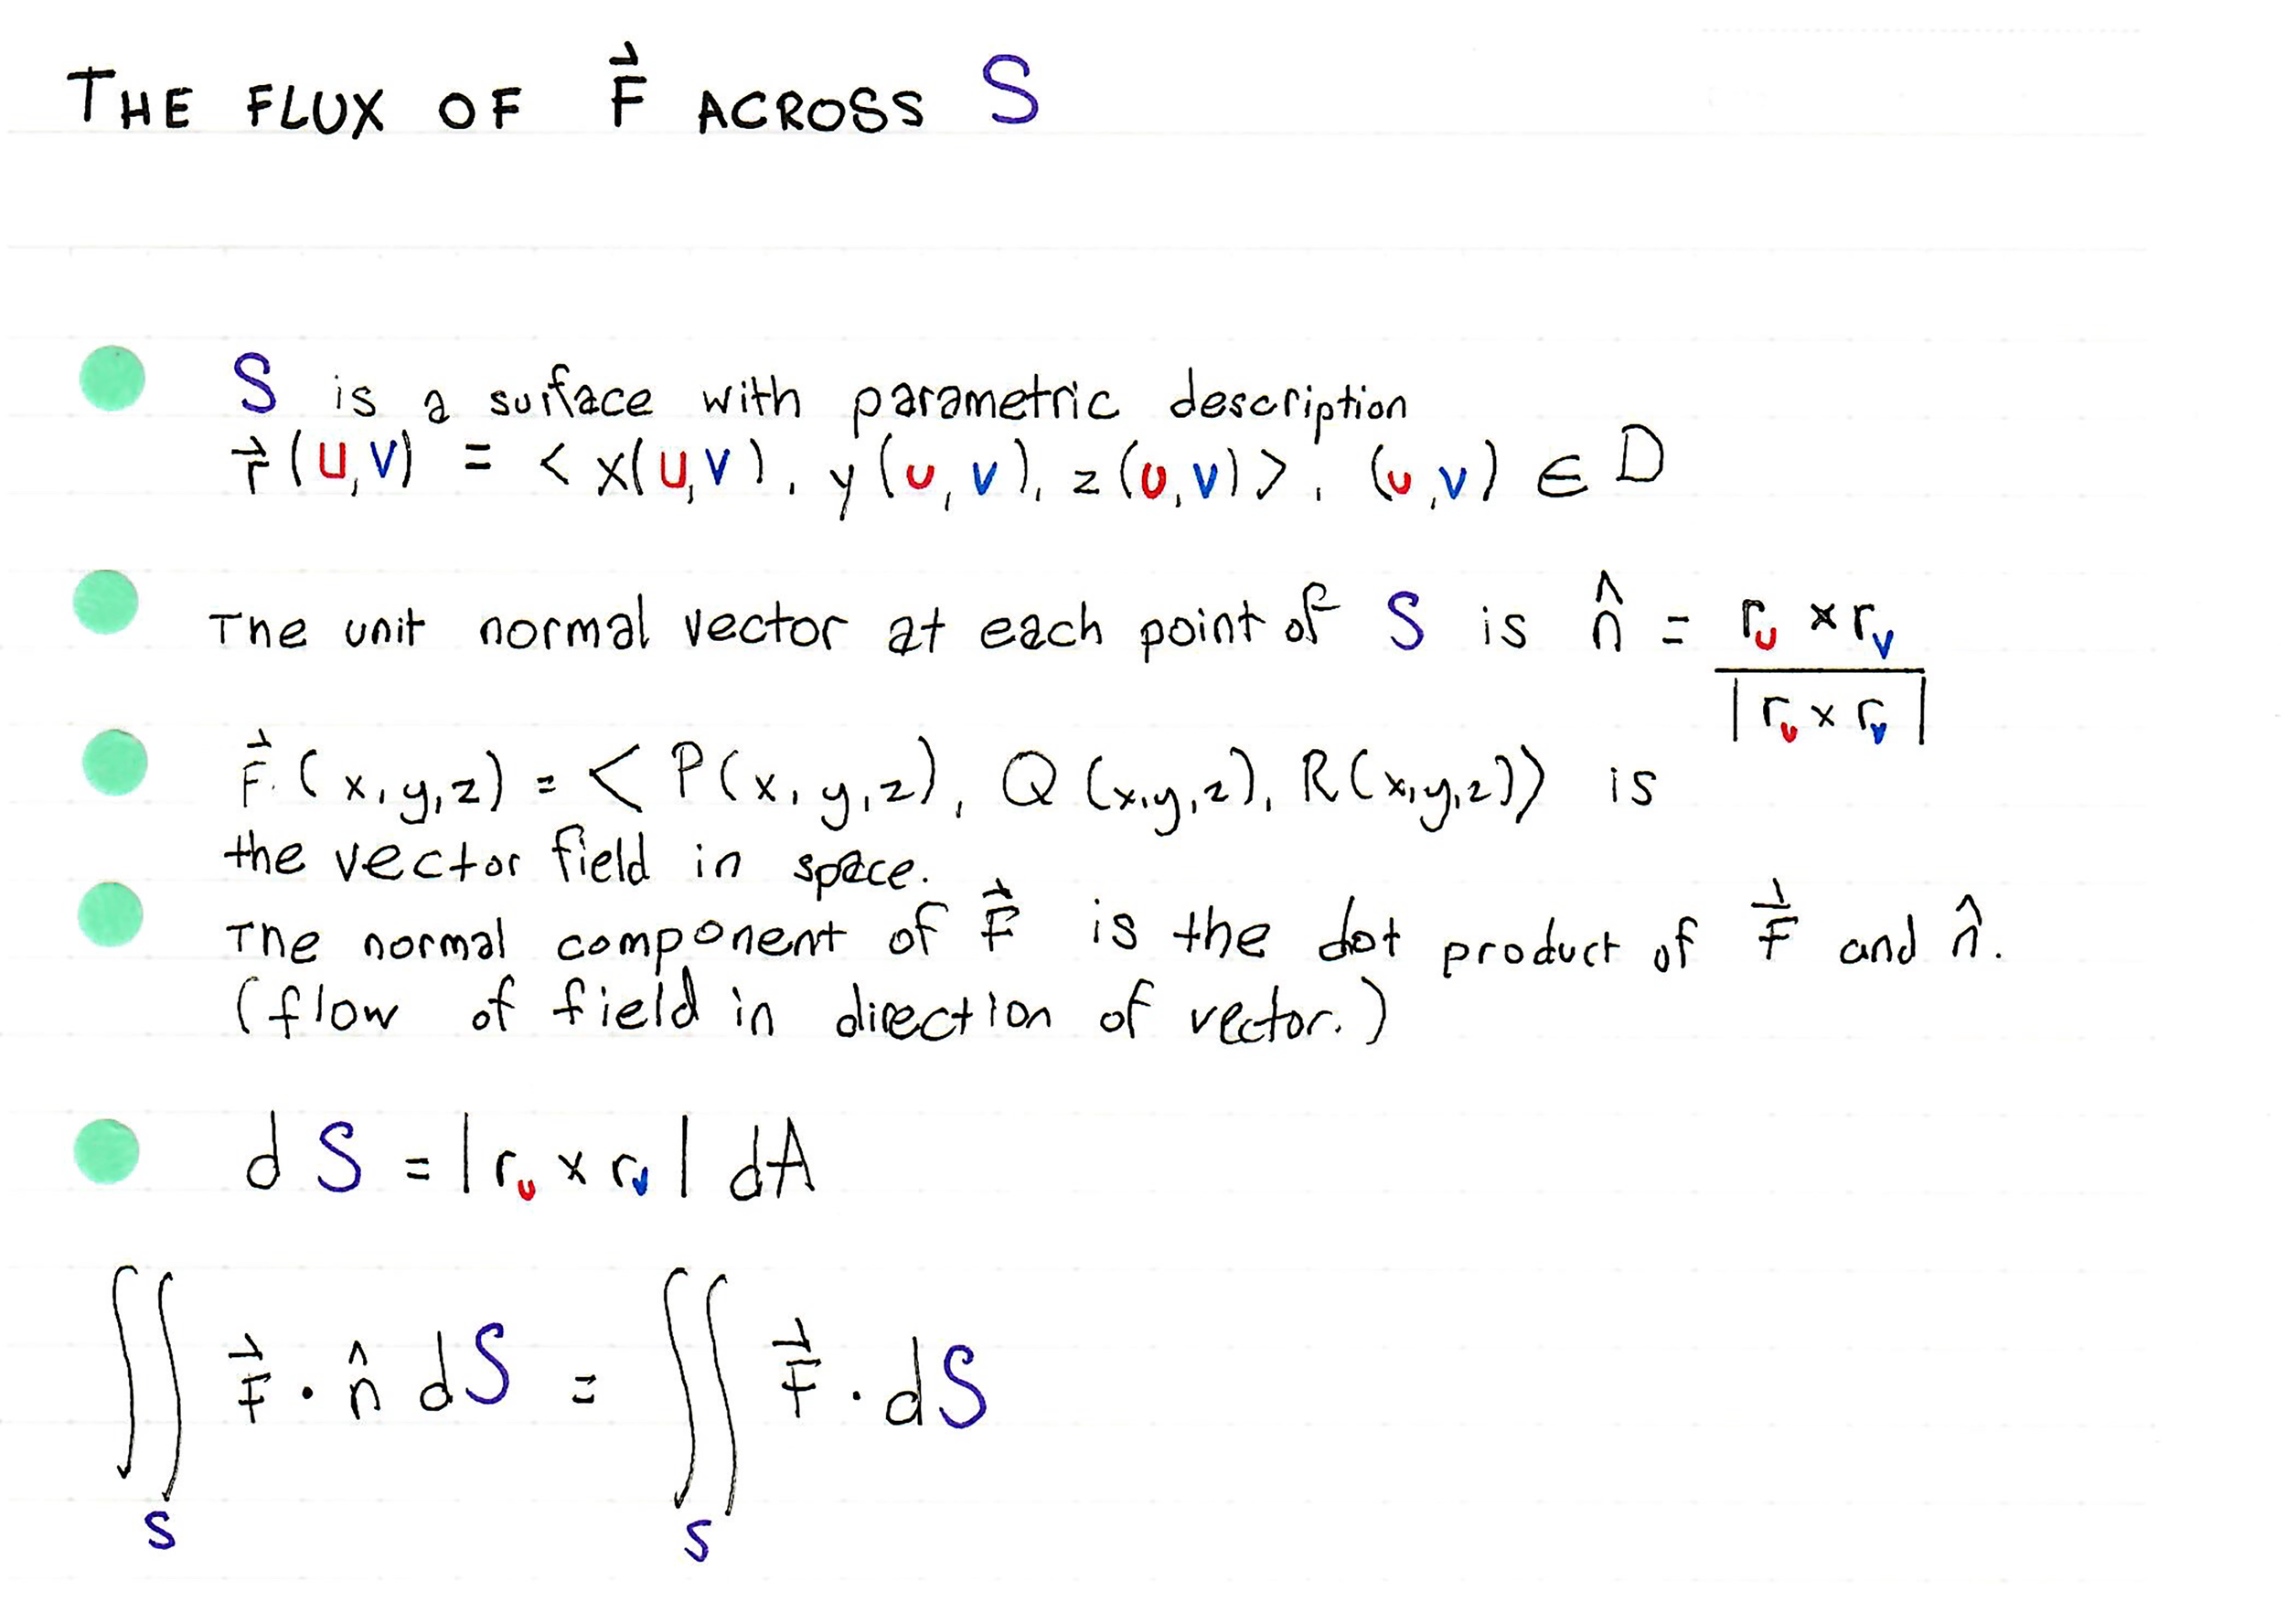 THE FLUX OF F⃗ ACROSS S
S is a surface with parametric description
r⃗(u,v) = < x(u,v), y(u,v), z(u,v) >, (u,v) ∈ D
The unit normal vector at each point of S is n̂ = r_u × r_v / |r_u × r_v|
F⃗(x,y,z) = < P(x,y,z), Q(x,y,z), R(x,y,z) > is
the vector field in space.
The normal component of F⃗ is the dot product of F⃗ and n̂.
(flow of field in direction of vector.)
dS = |r_u × r_v| dA
∬_S F⃗ · n̂ dS = ∬_S F⃗ · dS